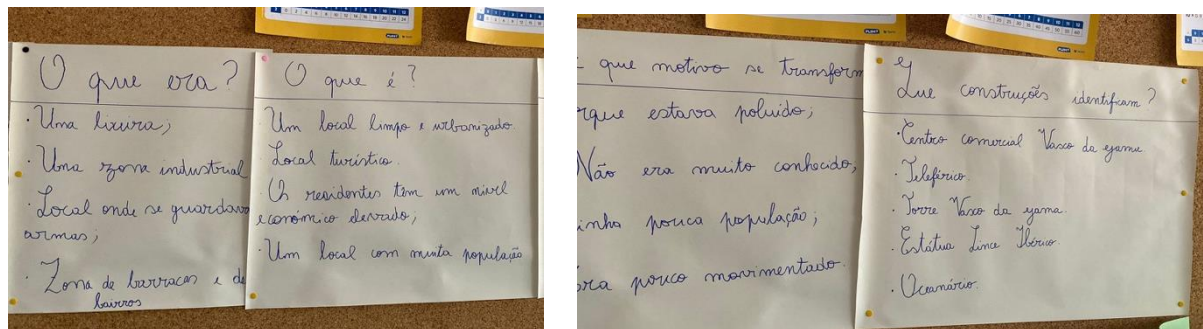 O que era?
· Uma lixeira;
· Uma zona industrial
· Local onde se guardava
armas;
· Zona de barracas e de
bairros
O que é?
· Um local limpo e urbanizado.
· Local turístico.
· Os residentes têm um nível
económico elevado;
· Um local com muita população
que motivo se transform
rque estava poluído;
Não era muito conhecido,
inha pouca população;
ra pouco movimentado.
Que construções identificam?
· Centro comercial Vasco da gama.
· Teleférico.
· Torre Vasco da gama.
· Estátua Lince Ibérico.
· Oceanário.